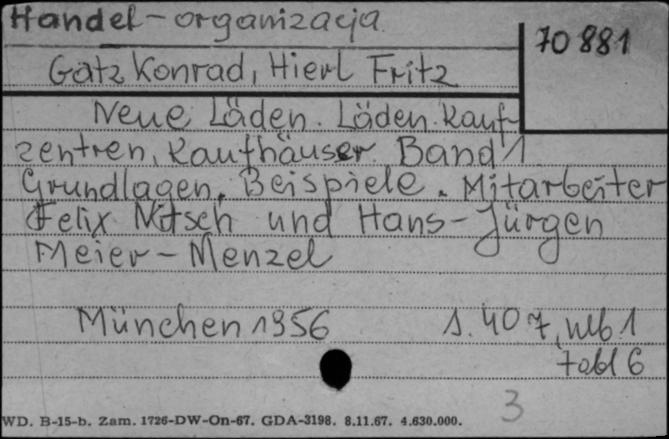 Handel - organizacja
70 881
Gatz Konrad, Hierl Fritz
Neue Läden. Läden. Kauf-
zentren, Kaufhäuser. Band 1
Grundlagen, Beispiele. Mitarbeiter
Felix Nitsch und Hans-Jürgen
Meier-Menzel
München 1956 s. 407, nlb 1
tabl 6
3
WD. B-15-b. Zam. 1726-DW-On-67. GDA-3198. 8.11.67. 4.630.000.